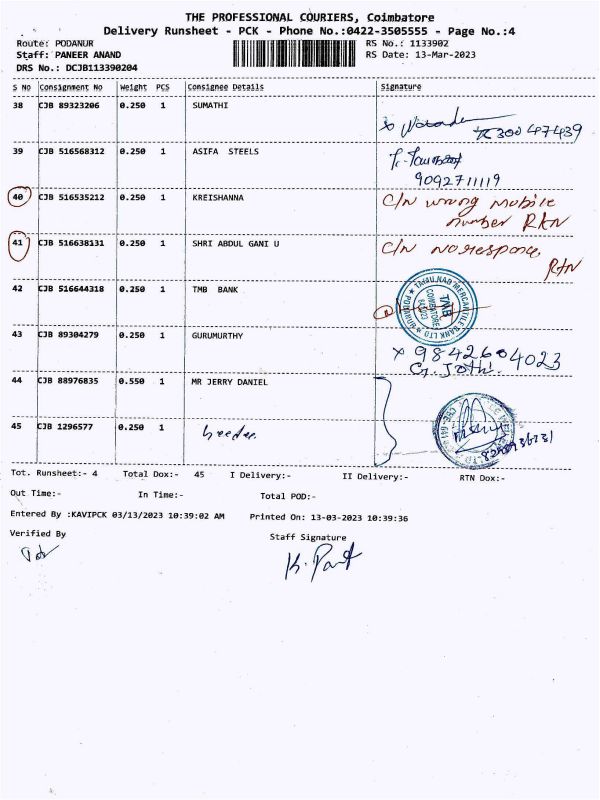 THE PROFESSIONAL COURIERS, Coimbatore
Delivery Runsheet - PCK - Phone No.:0422-3505555 - Page No.:4
Route: PODANUR RS No.: 1133902
Staff: PANEER ANAND RS Date: 13-Mar-2023
DRS No.: DCJB113390204
S No Consignment No Weight PCS Consignee Details Signature
38 CJB 89323206 0.250 1 SUMATHI
39 CJB 516568312 0.250 1 ASIFA STEELS
9092711119
40 CJB 516535212 0.250 1 KREISHANNA C/N wrong mobile
number RTN
41 CJB 516638131 0.250 1 SHRI ABDUL GANI U C/N no response
RTN
42 CJB 516644318 0.250 1 TMB BANK
TAMILNAD MERCANTILE BANK LTD
TMB
COIMBATORE
43 CJB 89304279 0.250 1 GURUMURTHY x 9842604023
G. Jothi
44 CJB 88976835 0.550 1 MR JERRY DANIEL
45 CJB 1296577 0.250 1
Tot. Runsheet:- 4 Total Dox:- 45 I Delivery:- II Delivery:- RTN Dox:-
Out Time:- In Time:- Total POD:-
Entered By :KAVIPCK 03/13/2023 10:39:02 AM Printed On: 13-03-2023 10:39:36
Verified By Staff Signature